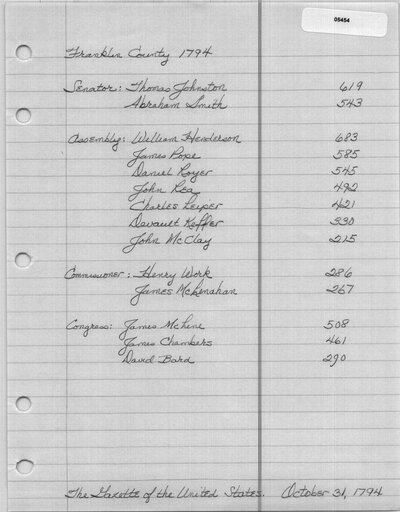 05454
Franklin County 1794
Senator: Thomas Johnston 619
Abraham Smith 543
Assembly: William Henderson 683
James Poxe 585
Daniel Royer 545
John Rea 492
Charles Leiper 421
Devault Keffer 330
John McClay 215
Commissioner: Henry Work 286
James McLenahan 267
Congress: James McLene 508
James Chambers 461
David Bard 290
The Gazette of the United States. October 31, 1794